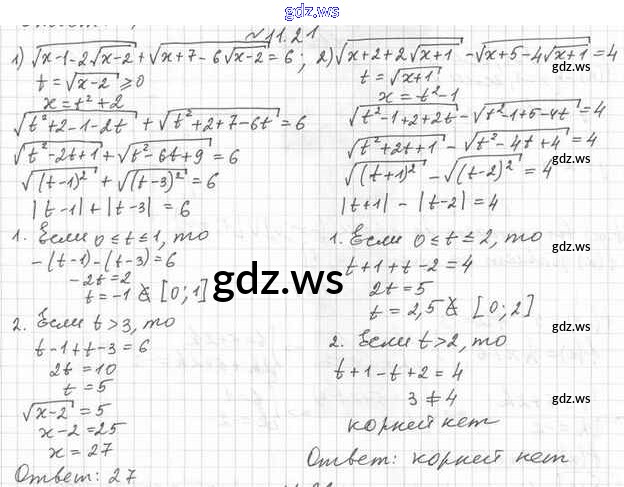 gdz.ws
№11.21
1) √(x-1-2√(x-2)) + √(x+7-6√(x-2)) = 6;
t = √(x-2) ≥ 0
x = t²+2
√(t²+2-1-2t) + √(t²+2+7-6t) = 6
√(t²-2t+1) + √(t²-6t+9) = 6
√((t-1)²) + √((t-3)²) = 6
|t-1| + |t-3| = 6
1. Если 0 ≤ t ≤ 1, то
-(t-1)-(t-3) = 6
-2t = 2
t = -1 ∉ [0;1]
2. Если t > 3, то
t-1+t-3 = 6
2t = 10
t = 5
√(x-2) = 5
x-2 = 25
x = 27
Ответ: 27
2) √(x+2+2√(x+1)) - √(x+5-4√(x+1)) = 4
t = √(x+1)
x = t²-1
√(t²-1+2+2t) - √(t²-1+5-4t) = 4
√(t²+2t+1) - √(t²-4t+4) = 4
√((t+1)²) - √((t-2)²) = 4
|t+1| - |t-2| = 4
1. Если 0 ≤ t ≤ 2, то
t+1+t-2 = 4
2t = 5
t = 2,5 ∉ [0;2]
2. Если t > 2, то
t+1-t+2 = 4
3 ≠ 4
корней нет
Ответ: корней нет
gdz.ws
gdz.ws
gdz.ws
gdz.ws
gdz.ws
gdz.ws
gdz.ws
gdz.ws